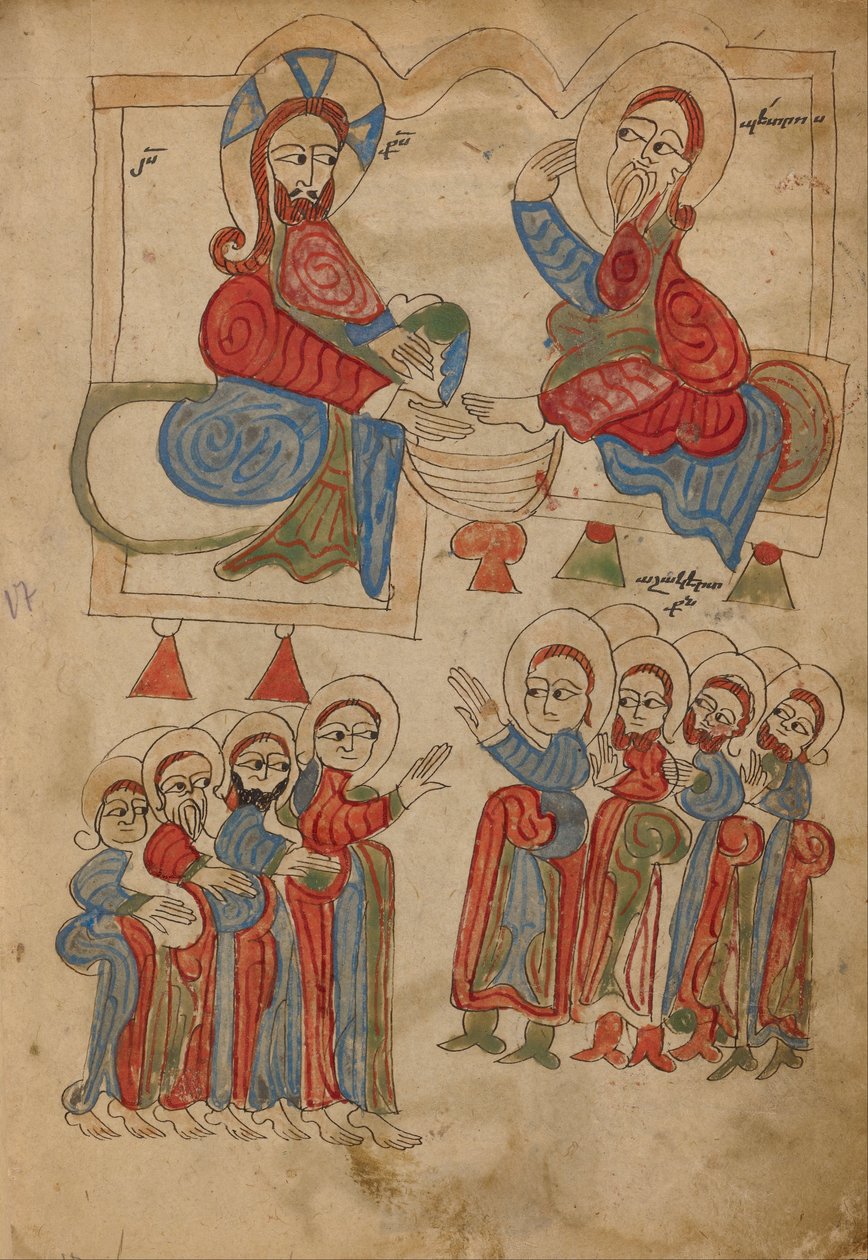 յս քս
պետրոս
աշակերտ
քն
17